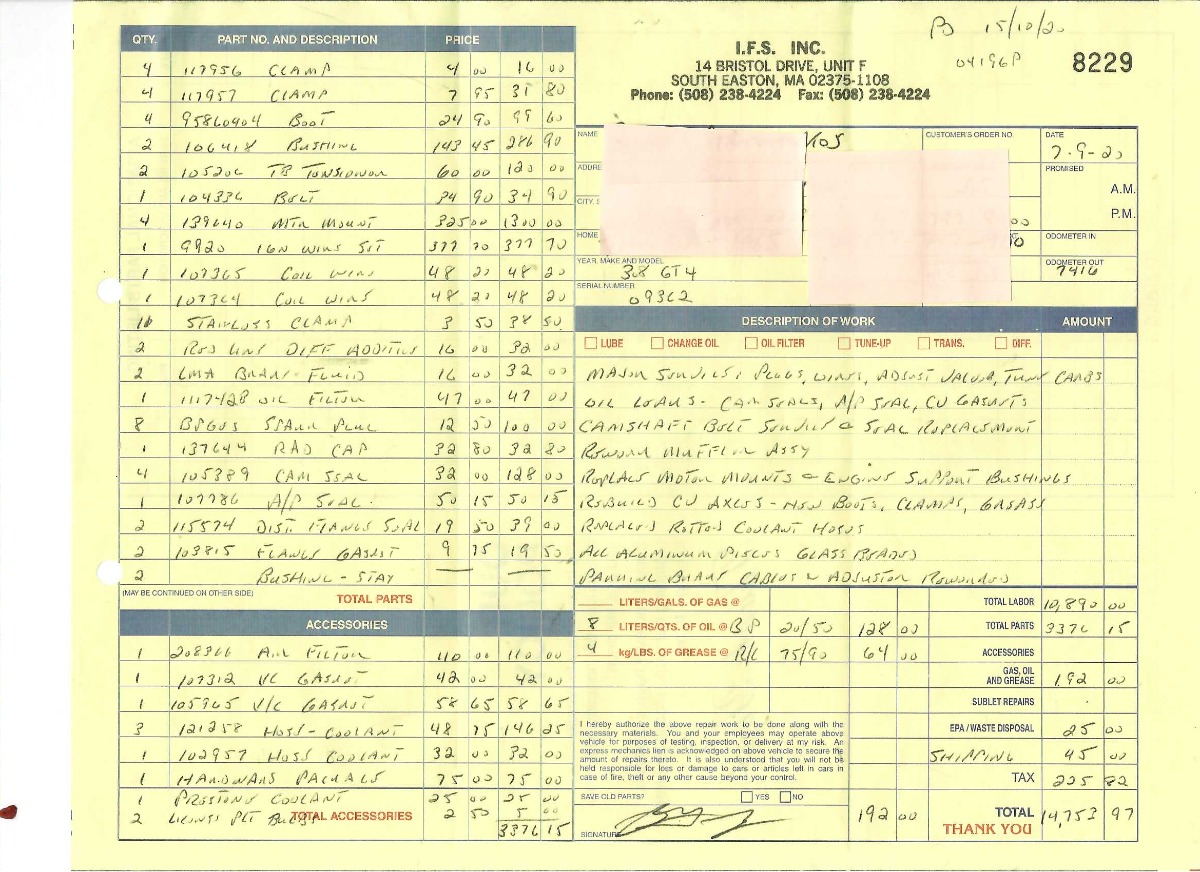 B 15/10/20
04196P
8229
I.F.S. INC.
14 BRISTOL DRIVE, UNIT F
SOUTH EASTON, MA 02375-1108
Phone: (508) 238-4224 Fax: (508) 238-4224
QTY. PART NO. AND DESCRIPTION PRICE
4 117956 CLAMP 4 00 16 00
4 117957 CLAMP 7 95 31 80
4 95860404 BOOT 24 90 99 60
2 106418 BUSHING 143 45 286 90
2 105206 TB TENSIONER 60 00 120 00
1 104336 BOLT 34 90 34 90
4 139640 MTR MOUNT 325 00 1300 00
1 9920 IGN WIRE SET 377 70 377 70
1 107365 COIL WIRE 48 20 48 20
1 107364 COIL WIRE 48 20 48 20
STAINLESS CLAMP 3 50 38 50
2 RED LINE DIFF ADDITIVE 16 00 32 00
2 LMA BRAKE FLUID 16 00 32 00
1 1117428 OIL FILTER 47 00 47 00
8 BP6ES SPARK PLUG 12 50 100 00
1 137644 RAD CAP 32 80 32 80
4 105389 CAM SEAL 32 00 128 00
1 107786 A/P SEAL 50 15 50 15
2 115574 DIST FLANGE SEAL 19 50 39 00
2 103815 FLANGE GASKET 9 75 19 50
2 BUSHING - STAY
(MAY BE CONTINUED ON OTHER SIDE) TOTAL PARTS
ACCESSORIES
1 208366 AIR FILTER 110 00 110 00
1 107312 V/C GASKET 42 00 42 00
1 105965 V/C GASKET 58 65 58 65
3 121258 HOSE - COOLANT 48 75 146 25
1 102957 HOSE COOLANT 32 00 32 00
1 HARDWARE PACKAGE 75 00 75 00
1 PRESTONE COOLANT 25 00 25 00
2 LICENSE PLT BULBS 2 50 5 00
TOTAL ACCESSORIES 3376 15
NAME
CUSTOMER'S ORDER NO.
DATE
7-9-20
PROMISED
A.M.
P.M.
HOME
ODOMETER IN
YEAR, MAKE AND MODEL
308 GT4
ODOMETER OUT
7416
SERIAL NUMBER
09362
DESCRIPTION OF WORK AMOUNT
LUBE CHANGE OIL OIL FILTER TUNE-UP TRANS. DIFF.
MAJOR SERVICE: PLUGS, WIRES, ADJUST VALVES, TUNE CARBS
OIL LEAKS - CAM SEALS, A/P SEAL, CV GASKETS
CAMSHAFT BELT SERVICE & SEAL REPLACEMENT
REWORK MUFFLER ASSY
REPLACE MOTOR MOUNTS & ENGINE SUPPORT BUSHINGS
REBUILD CV AXLES - NEW BOOTS, CLAMPS, GREASE
REPLACED ROTTED COOLANT HOSES
ALL ALUMINUM PIECES GLASS BEADED
PARKING BRAKE CABLES & ADJUSTER REWORKED
LITERS/GALS. OF GAS @
8 LITERS/QTS. OF OIL @ BP 20/50 128 00
4 kg/LBS. OF GREASE @ R/L 75/90 64 00
TOTAL LABOR 10,890 00
TOTAL PARTS 3376 15
ACCESSORIES
GAS, OIL AND GREASE 192 00
SUBLET REPAIRS
EPA / WASTE DISPOSAL 25 00
SHIPPING 45 00
TAX 225 82
I hereby authorize the above repair work to be done along with the
necessary materials. You and your employees may operate above
vehicle for purposes of testing, inspection, or delivery at my risk. An
express mechanics lien is acknowledged on above vehicle to secure the
amount of repairs thereto. It is also understood that you will not be
held responsible for loss or damage to cars or articles left in cars in
case of fire, theft or any other cause beyond your control.
SAVE OLD PARTS? YES NO
SIGNATURE
192 00
TOTAL 14,753 97
THANK YOU